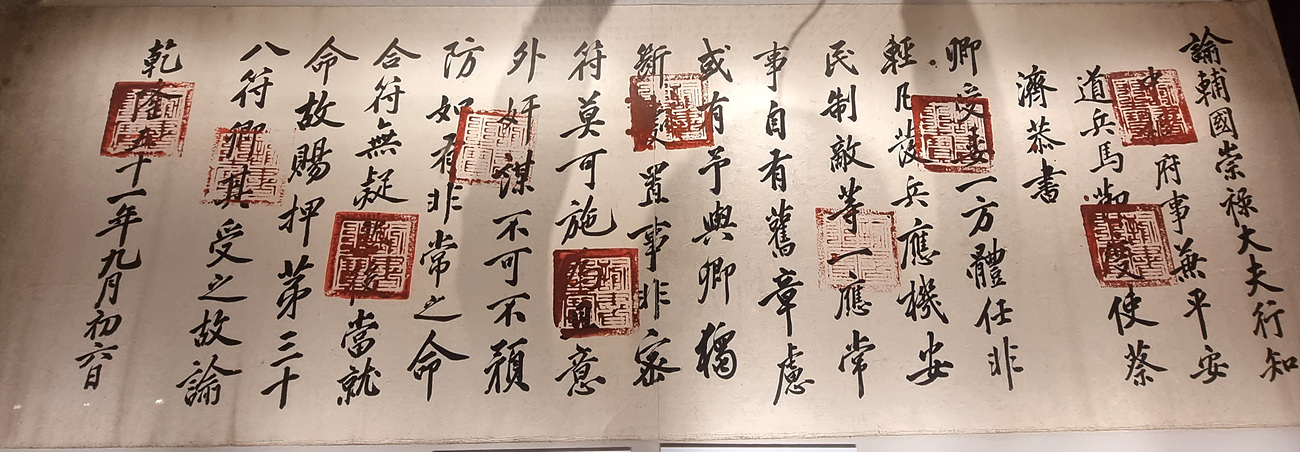 諭輔國崇祿大夫行知
中樞府事兼平安
道兵馬節度使蔡
濟恭書
卿受委一方體任非
輕凡發兵應機安
民制敵等一應常
事自有舊章慮
或有予與卿獨
斷處置事非密
符莫可施行且意
外奸謀不可不預
防如有非常之命
合符無疑然後當就
命故賜押第三十
八符卿其受之故諭
乾隆五十一年九月初六日